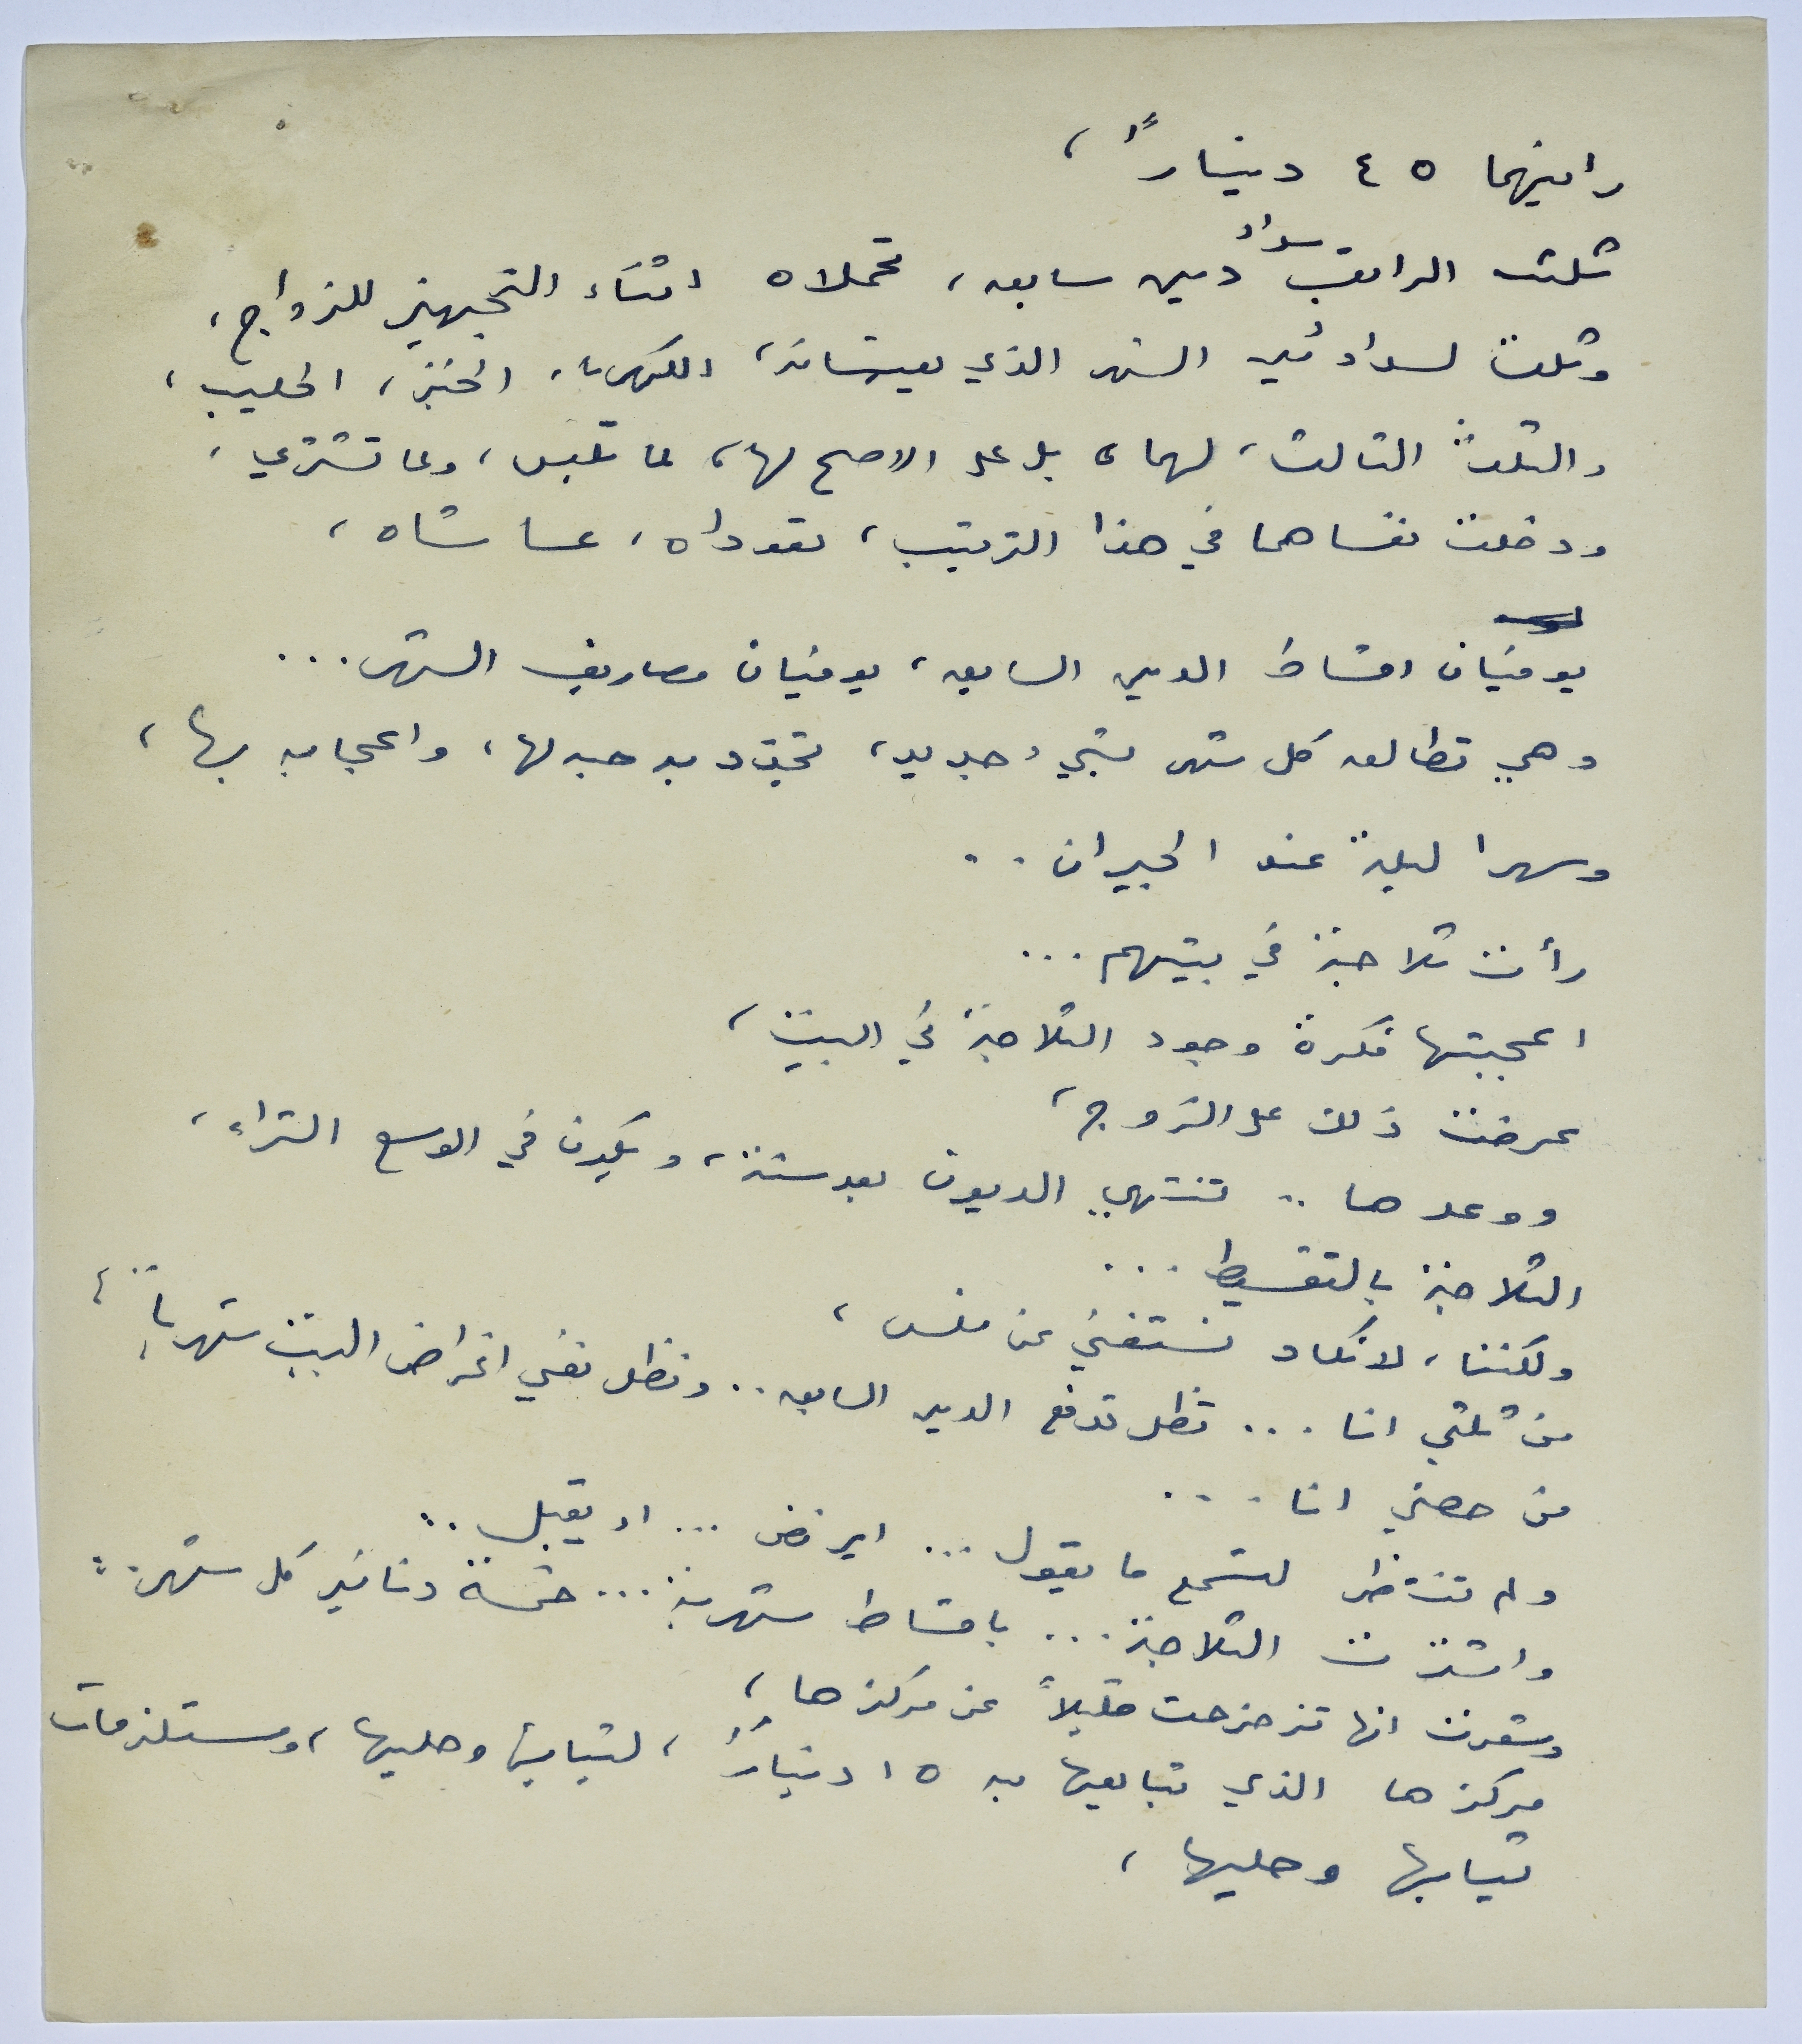 راتبهما ٤٥ ديناراً،
ثلث الراتب سداد دين سابق، تحملاه اثناء التجهيز للزواج،
وثلث لسداد دين الشهر الذي يعيشانه، الكهرباء، الخبز، الحليب،
والثلث الثالث، لهما، بل على الاصح لها، لما تلبس، ولما تشتري،
ودخلت نفساهما في هذا الترتيب، تعوداه، عاشاه،
يوفيان اقساط الدين السابق، يوفيان مصاريف الشهر...
وهي تطالعه كل شهر بشيء جديد، تجدد به حبه لها، واعجابه بها،
وسهرا ليلة عند الجيران..
رأت ثلاجة في بيتهم...
اعجبتها فكرة وجود الثلاجة في البيت،
عرضت ذلك على الزوج،
ووعدها.. تنتهي الديون بعد سنة، ويكون في الوسع الشراء،
الثلاجة بالتقسيط...
ولكننا، لا نكاد نستغني عن فلس،
من ثلثي انا... تظل تدفع الدين السابق.. ونظل نفي اغراض البيت شهرياً،
من حصتي انا...
ولم تنتظر لتسمع ما يقول... ايرفض... او يقبل..
واشترت الثلاجة... باقساط شهرية... خمسة دنانير كل شهر..
وشعرت انها تزحزحت قليلاً عن مركزها،
مركزها الذي تبايعها به ١٥ ديناراً، لثيابها وحليها، ومستلزمات
ثيابها وحليها،